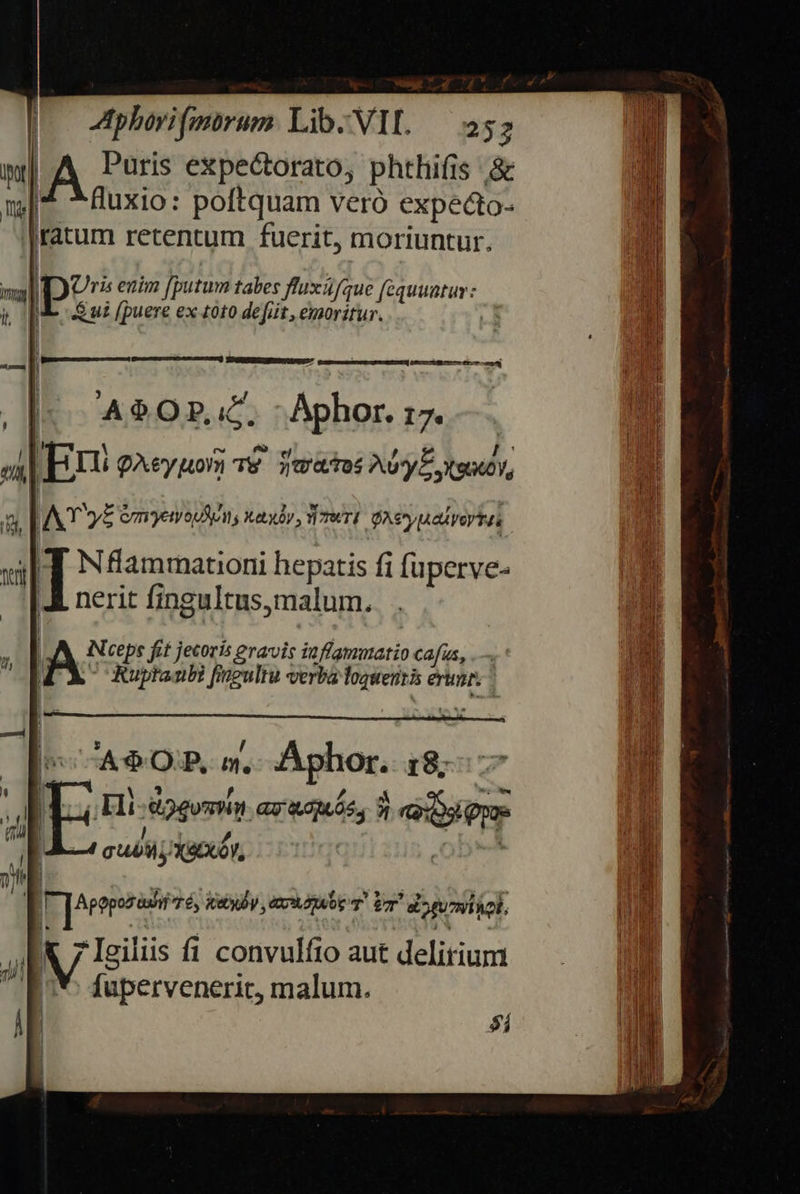 Aphoriſmorum Lib. VII. 253
A Puris expectorato, phthiſis &
fluxio: poſtquam verò expecto-
ratum retentum fuerit, moriuntur.
PUris enim ſputum tabes fluxúſque ſequuntur:
Qui ſpuere ex toto deſiit, emoritur.
ἈΦΟΡ. ιζ. Aphor. 17.
ἘΠὶ φλεγμονῇ τοῦ ἥπατος λὺγξ, κακόν,
ΛΥγξ ἐπιγεινομένη, κακὸν, ἥπατι φλεγμαίνοντι.
INflammationi hepatis ſi ſuperve-
nerit ſingultus, malum.
ANceps ſit jecoris gravis inflammatio caſus,
Rupta ubi ſingultu verba loquentis erunt.
ἈΦΟΡ. ιη. Aphor. 18.
ἘΠὶ ἀγρυπνίῃ σπασμός, ἢ παραφροσύνη, κακόν,
ἈΦροσύνη τέ, κακὸν, σπασμός τ' ἐπ' ἀγρυπνίῃσι.
VIgiliis ſi convulſio aut delirium
ſupervenerit, malum.
Si